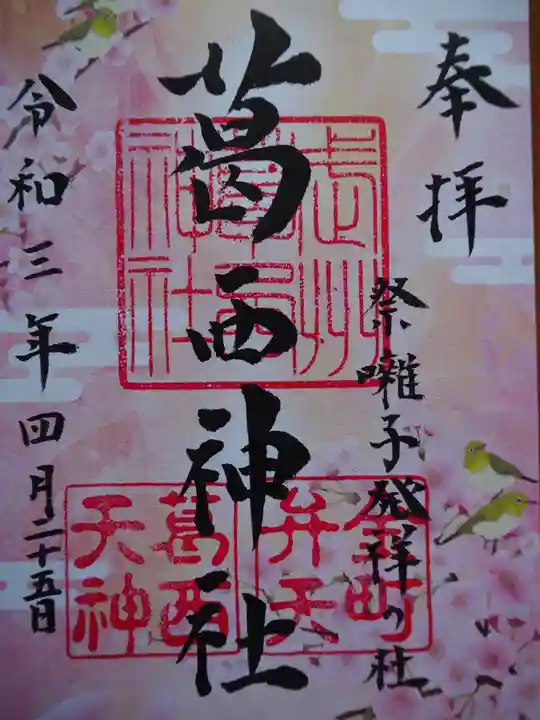 奉拝
祭囃子発祥の社
葛西神社
令和三年四月二十五日
武州葛西神社
金町弁天
葛西天神